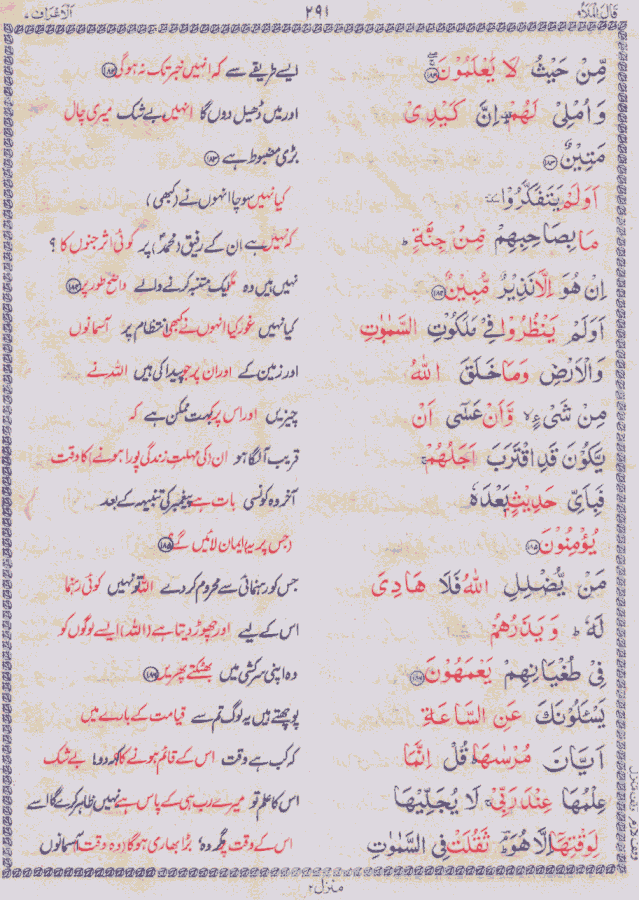 قَالَ الْمَلَاُ ٩
٢٩١
اَلْاَعْرَاف ٧
مِّنْ حَيْثُ لَا يَعْلَمُوْنَ ۝١٨٢
ایسے طریقے سے کہ انہیں خبر تک نہ ہوگی ۝١٨٢
وَاُمْلِیْ لَهُمْ اِنَّ كَيْدِیْ
اور میں ڈھیل دوں گا انہیں بے شک میری چال
مَتِيْنٌ ۝١٨٣
بڑی مضبوط ہے ۝١٨٣
اَوَلَمْ يَتَفَكَّرُوْا
کیا نہیں سوچا انہوں نے (کبھی)
مَا بِصَاحِبِهِمْ مِّنْ جِنَّةٍ ؕ
کہ نہیں ہے ان کے رفیق (محمدؐ) پر کوئی اثر جنوں کا ؟
اِنْ هُوَ اِلَّا نَذِيْرٌ مُّبِيْنٌ ۝١٨٤
نہیں ہیں وہ مگر ایک متنبہ کرنے والے واضح طور پر ۝١٨٤
اَوَلَمْ يَنْظُرُوْا فِیْ مَلَكُوْتِ السَّمٰوٰتِ
کیا نہیں غور کیا انہوں نے کبھی انتظام پر آسمانوں
وَالْاَرْضِ وَمَا خَلَقَ اللهُ
اور زمین کے اور ان پر جو پیدا کی ہیں اللہ نے
مِنْ شَیْءٍ ۙ وَّاَنْ عَسٰۤی اَنْ
چیزیں اور اس پر کہ بہت ممکن ہے کہ
يَّكُوْنَ قَدِ اقْتَرَبَ اَجَلُهُمْ ۚ
قریب آ لگا ہو ان (کی مہلت زندگی پورا ہونے) کا وقت
فَبِاَیِّ حَدِيْثٍۭ بَعْدَهٗ
آخر وہ کونسی بات ہے پیغمبر کی تنبیہ کے بعد
يُؤْمِنُوْنَ ۝١٨٥
(جس پر یہ) ایمان لائیں گے؟ ۝١٨٥
مَنْ يُّضْلِلِ اللهُ فَلَا هَادِیَ
جس کو رہنمائی سے محروم کر دے اللہ تو نہیں کوئی رہنما
لَهٗ ؕ وَيَذَرُهُمْ
اس کے لیے اور چھوڑ دیتا ہے (اللہ) ایسے لوگوں کو
فِیْ طُغْيَانِهِمْ يَعْمَهُوْنَ ۝١٨٦
وہ اپنی سرکشی میں بھٹکتے پھریں ۝١٨٦
يَسْـَٔلُوْنَكَ عَنِ السَّاعَةِ
پوچھتے ہیں یہ لوگ تم سے قیامت کے بارے میں
اَيَّانَ مُرْسٰىهَا ؕ قُلْ اِنَّمَا
کہ کب ہے وقت اس کے قائم ہونے کا؟ کہہ دو! بے شک
عِلْمُهَا عِنْدَ رَبِّیْ ۚ لَا يُجَلِّيْهَا
اس کا علم تو میرے رب ہی کے پاس ہے نہیں ظاہر کرے گا اسے
لِوَقْتِهَاۤ اِلَّا هُوَ ؕ ثَقُلَتْ فِی السَّمٰوٰتِ
اس کے وقت پر مگر وہ بڑا بھاری ہوگا (وہ وقت) آسمانوں
منزل ٢